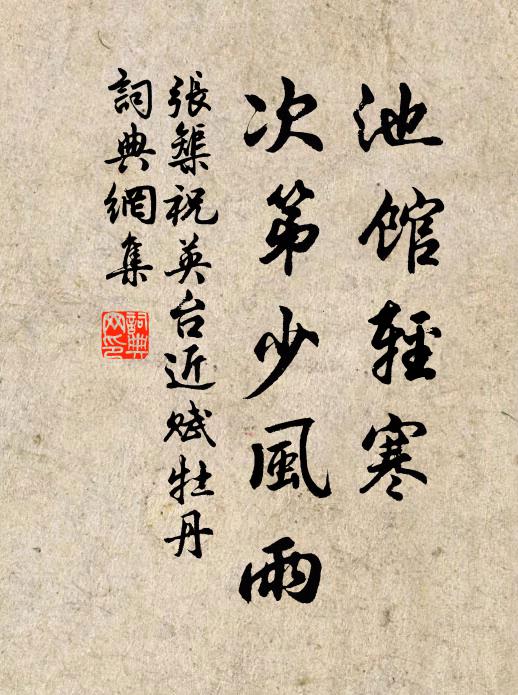 池館輕寒
次第少風雨
張榘祝英台近賦牡丹
詞典網集
詞典网印